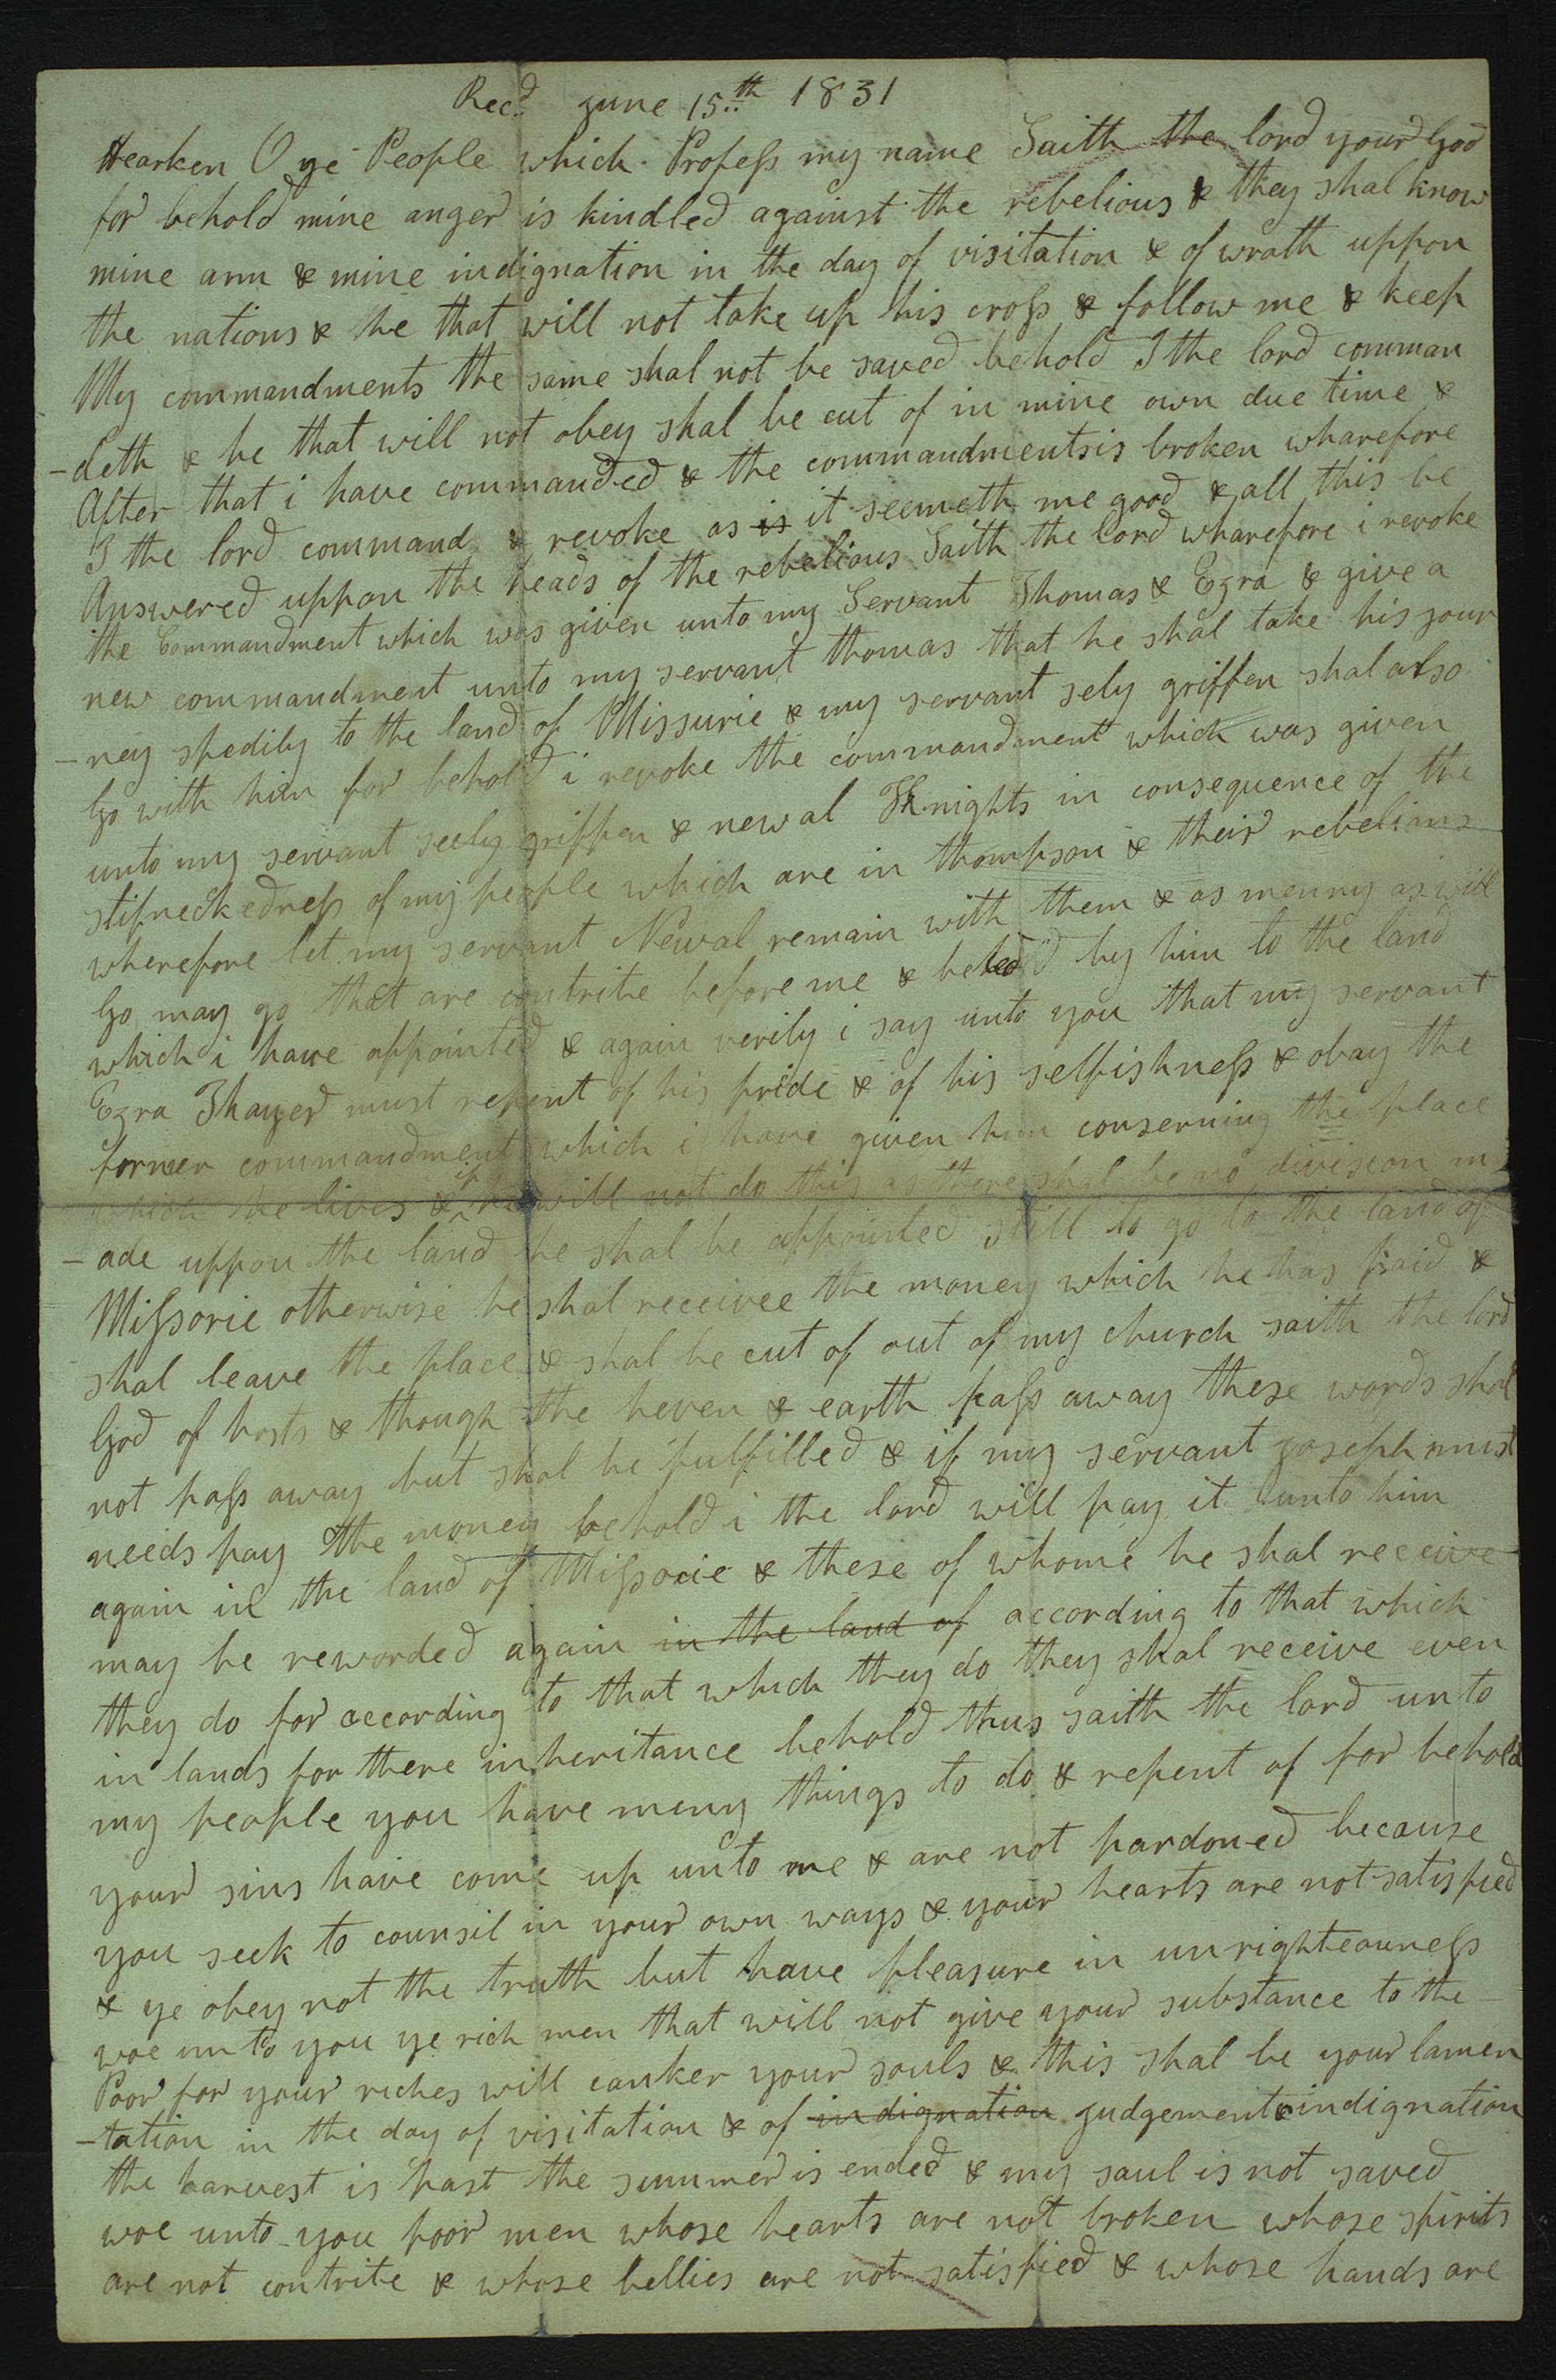 Recd. june 15th 1831
Hearken O ye People which Profess my name Saith the lord your God
for behold mine anger is kindled against the rebelious & they shal know
mine arm & mine indignation in the day of visitation & of wrath uppon
the nations & he that will not take up his cross & follow me & keep
My commandments the same shal not be saved behold I the lord comman
-deth & he that will not obey shal be cut of in mine own due time &
After that i have commanded & the commandmentsis broken wharefore
I the lord command & revoke as is it seemeth me good & all this be
Answered uppon the heads of the rebelious Saith the lord wharefore i revoke
the Commandment which was given unto my Servant Thomas & Ezra & give a
new commandment unto my servant thomas that he shal take his jour
-ney spedily to the land of Missurie & my servant sely griffen shal also
Go with him for behold i revoke the commandment which was given
unto my servant seely griffen & newal Knights in consequence of the
stifneckedness of my people which are in thompson & their rebelions
wherefore let my servant Newal remain with them & as menny as will
Go may go that are contrite before me & be led by him to the land
which i have appointed & again verily i say unto you that my servant
Ezra Thayer must repent of his pride & of his selfishness & obay the
former commandment which i have given him conserning the place
which he lives & if he will not do this as there shal be no division m
-ade uppon the land he shal be appointed still to go to the land of
Missorie otherwise he shal receivee the money which he has paid &
shal leave the place & shal be cut of out of my church saith the lord
God of hosts & though the heven & earth pass away these words shal
not pass away but shal be fulfilled & if my servant joseph must
needs pay the money behold i the lord will pay it unto him
again in the land of Missorie & these of whome he shal receive
may be reworded again in the land of according to that which
they do for according to that which they do they shal receive even
in lands for there inheritance behold thus saith the lord unto
my people you have meny things to do & repent of for behold
your sins have come up unto me & are not pardoned because
you seek to counsil in your own ways & your hearts are not satisfied
& ye obey not the truth but have pleasure in unrighteouness
woe unto you ye rich men that will not give your substance to the
Poor for your riches will canker your souls & this shal be your lamen
-tation in the day of visitation & of indignation judgement & indignation
the harvest is past the summer is ended & my saul is not saved
woe unto you poor men whose hearts are not broken whose spirits
are not contrite & whose bellies are not satisfied & whose hands are